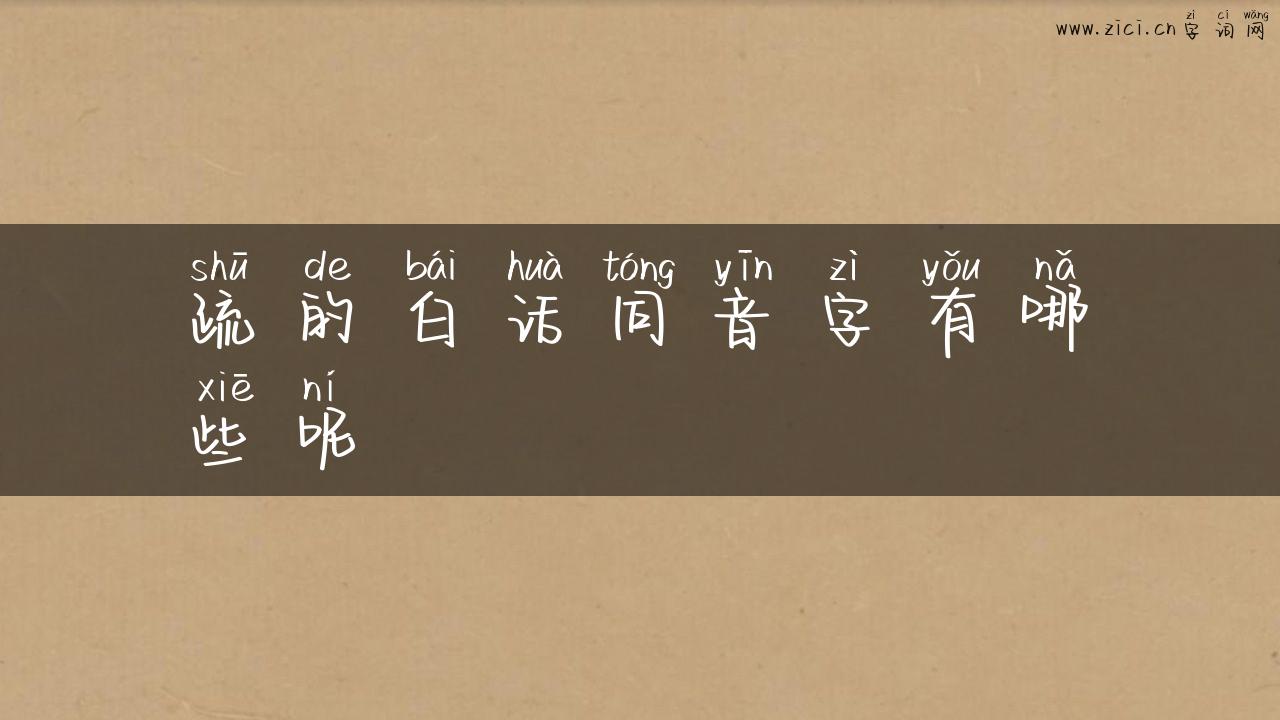 zì cí wǎng
www.zici.cn 字 词 网
shū de bái huà tóng yīn zì yǒu nǎ
疏 的 白 话 同 音 字 有 哪
xiē ní
些 呢